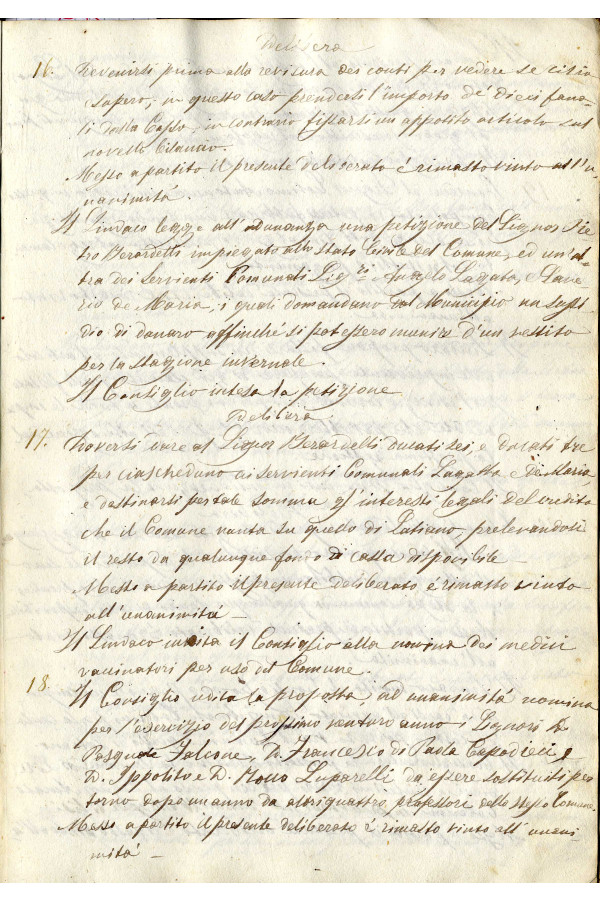 Delibera
16. Devenirsi prima alla revisura dei conti per vedere se ci sia
supero, in questo caso prendersi l'importo de' dieci fana-
li dalla Cassa, in contrario fissarsi un apposito articolo sul
novello bilancio.
Messo a partito il presente deliberato é rimasto vinto all'u-
nanimità.
Il Sindaco legge all'adunanza una petizione del Signor Pie-
tro Berardelli impiegato allo Stato Civile del Comune, ed un'al-
tra dei Servienti Comunali Sig.ri Angelo Lagatta, e Save-
rio de Maria, i quali domandano dal Municipio un sussi-
dio di danaro affinché si potessero munire d'un vestito
per la stagione invernale.
Il Consiglio intesa la petizione
Delibera
17. Doversi dare al Signor Berardelli ducati sei, e ducati tre
per ciascheduno ai servienti Comunali Lagatta e De Maria
e destinarsi per tale somma gl'interessi legali del credito
che il Comune vanta su quello di Latiano, prelevandosi
il resto da qualunque fondo di cassa disponibile
Messo a partito il presente deliberato é rimasto vinto
all'unanimità —
Il Sindaco invita il Consiglio alla nomina dei medici
vaccinatori per uso del Comune.
18. Il Consiglio udita la proposta, ad unanimità nomina
per l'esercizio del prossimo venturo anno i Signori D.
Pasquale Falcone, D. Francesco di Paola Capodieci,
D. Ippolito e D. Luparelli da essere sostituiti per
torno dopo un anno da altri quattro professori dello stesso Comune.
Messo a partito il presente deliberato é rimasto vinto all'unani-
mità —